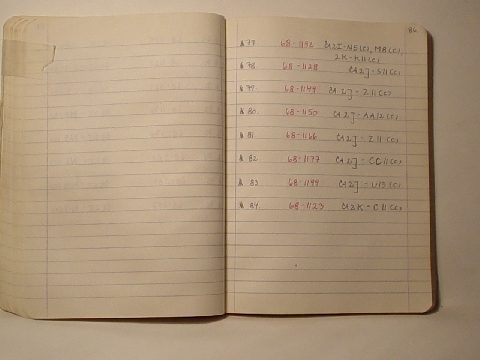 86
77 68-1132 CA2I-N5(C), MB(C),
2K-K11(C)
78. 68-1128 CA2J-S11(C)
79. 68-1149 CA2J-Z11(C)
80. 68-1150 CA2J-AA12(C)
81. 68-1166 CA2J-Z11(C)
82 68-1177 CA2J-CC11(C)
83 68-1199 CA2J-U13(C)
84. 68-1123 CA2K-C11(C)